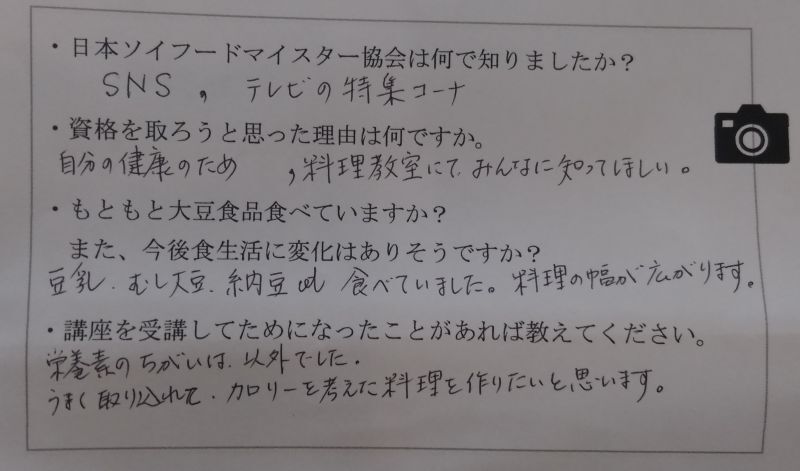 ・日本ソイフードマイスター協会は何で知りましたか?
SNS , テレビの特集コーナ
・資格を取ろうと思った理由は何ですか。
自分の健康のため , 料理教室にて、みんなに知ってほしい。
・もともと大豆食品食べていますか?
また、今後食生活に変化はありそうですか?
豆乳、むし大豆、納豆 etc 食べていました。料理の幅が広がります。
・講座を受講してためになったことがあれば教えてください。
栄養素のちがいは、以外でした。
うまく取り込れて、カロリーを考えた料理を作りたいと思います。